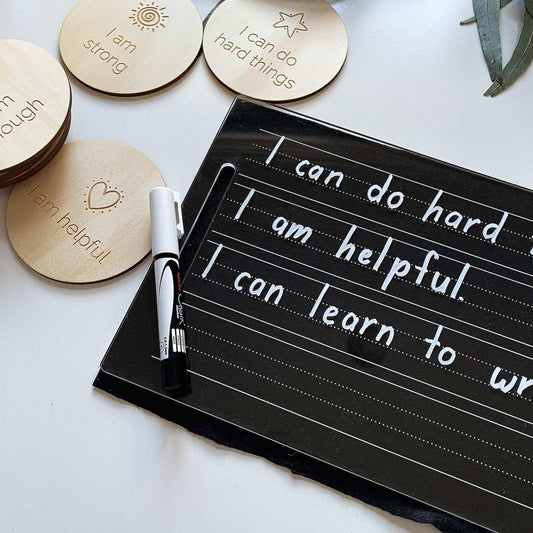 I am
strong
I can do
hard things
I am helpful
I can do hard
I am helpful.
I can learn to